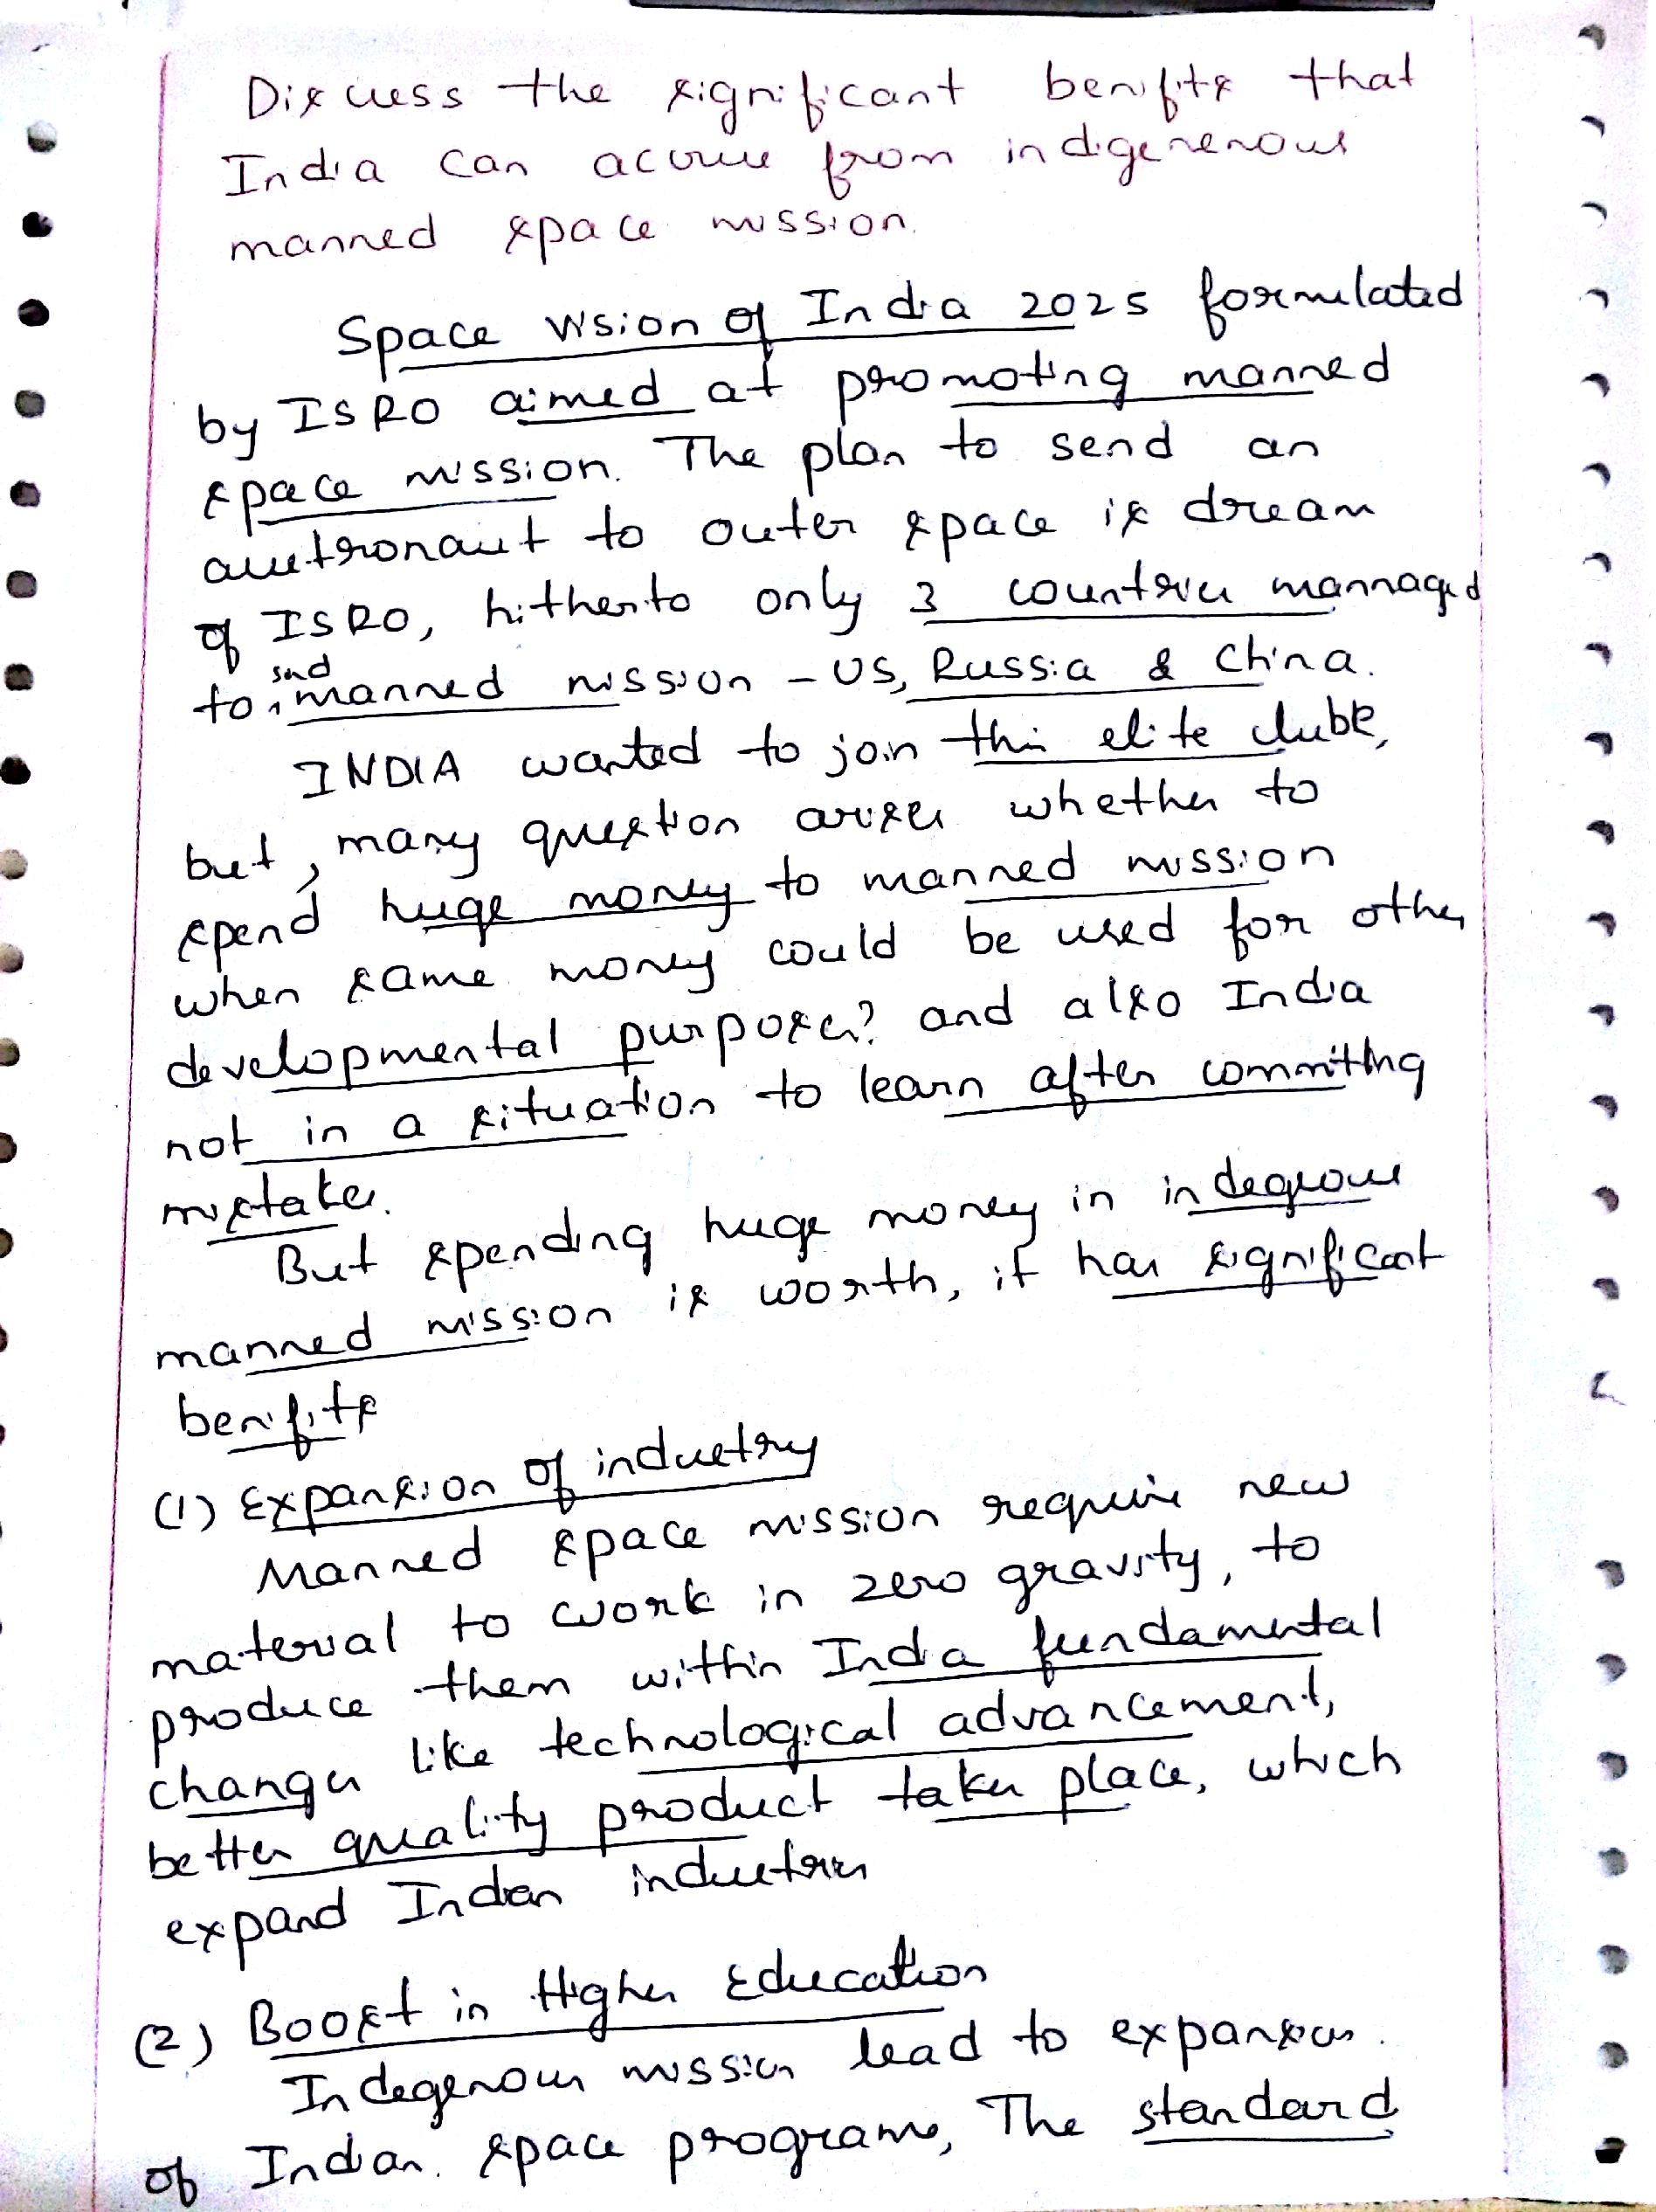 Discuss the significant benifits that
India can accrue from indigenenous
manned space mission.
Space vision of India 2025 formulated
by ISRO aimed at promoting manned
space mission. The plan to send an
austronaut to outer space is dream
of ISRO, hitherto only 3 countries mannaged
to send manned mission - US, Russia & China.
INDIA wanted to join this elite clubs,
but, many question arises whether to
spend huge money to manned mission
when same money could be used for other
developmental purposes? and also India
not in a situation to learn after committing
mistakes.
But spending huge money in indegious
manned mission is worth, it has significant
benifits
(1) Expansion of industry
Manned space mission require new
material to work in zero gravity, to
produce them within India fundamental
changes like technological advancement,
better quality product takes place, which
expand Indian industries
(2) Boost in Higher Education
Indegenous mission lead to expansion
of Indian space programs, The standard